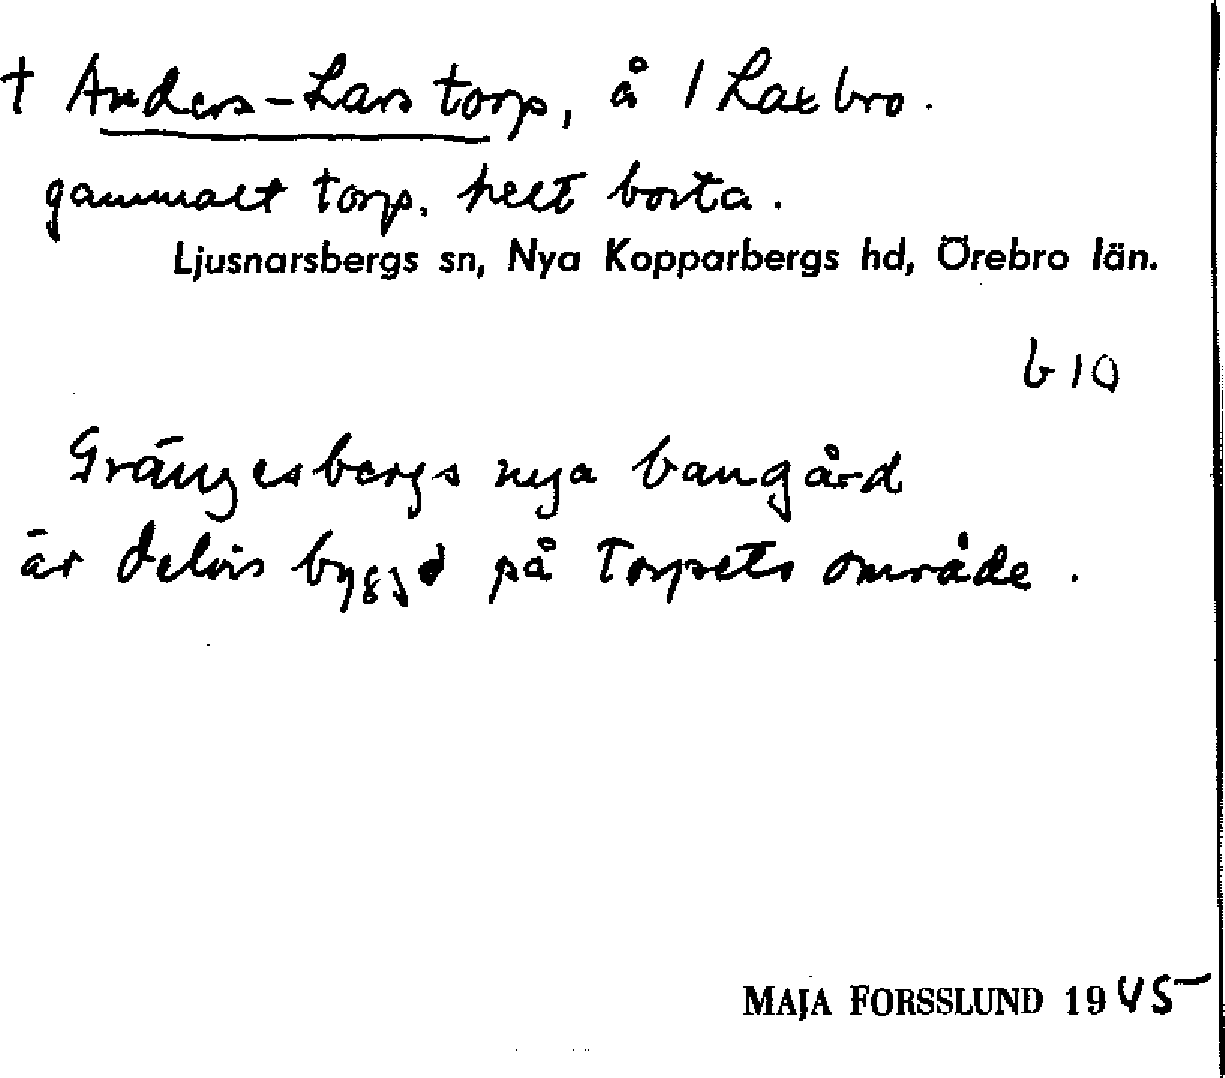 † Anders-Lars torp, å 1 Laxbro.
gammalt torp, helt borta.
Ljusnarsbergs sn, Nya Kopparbergs hd, Örebro län.
b 10
Grängesbergs nya bangård
är delvis byggd på Torpets område.
MAJA FORSSLUND 1945